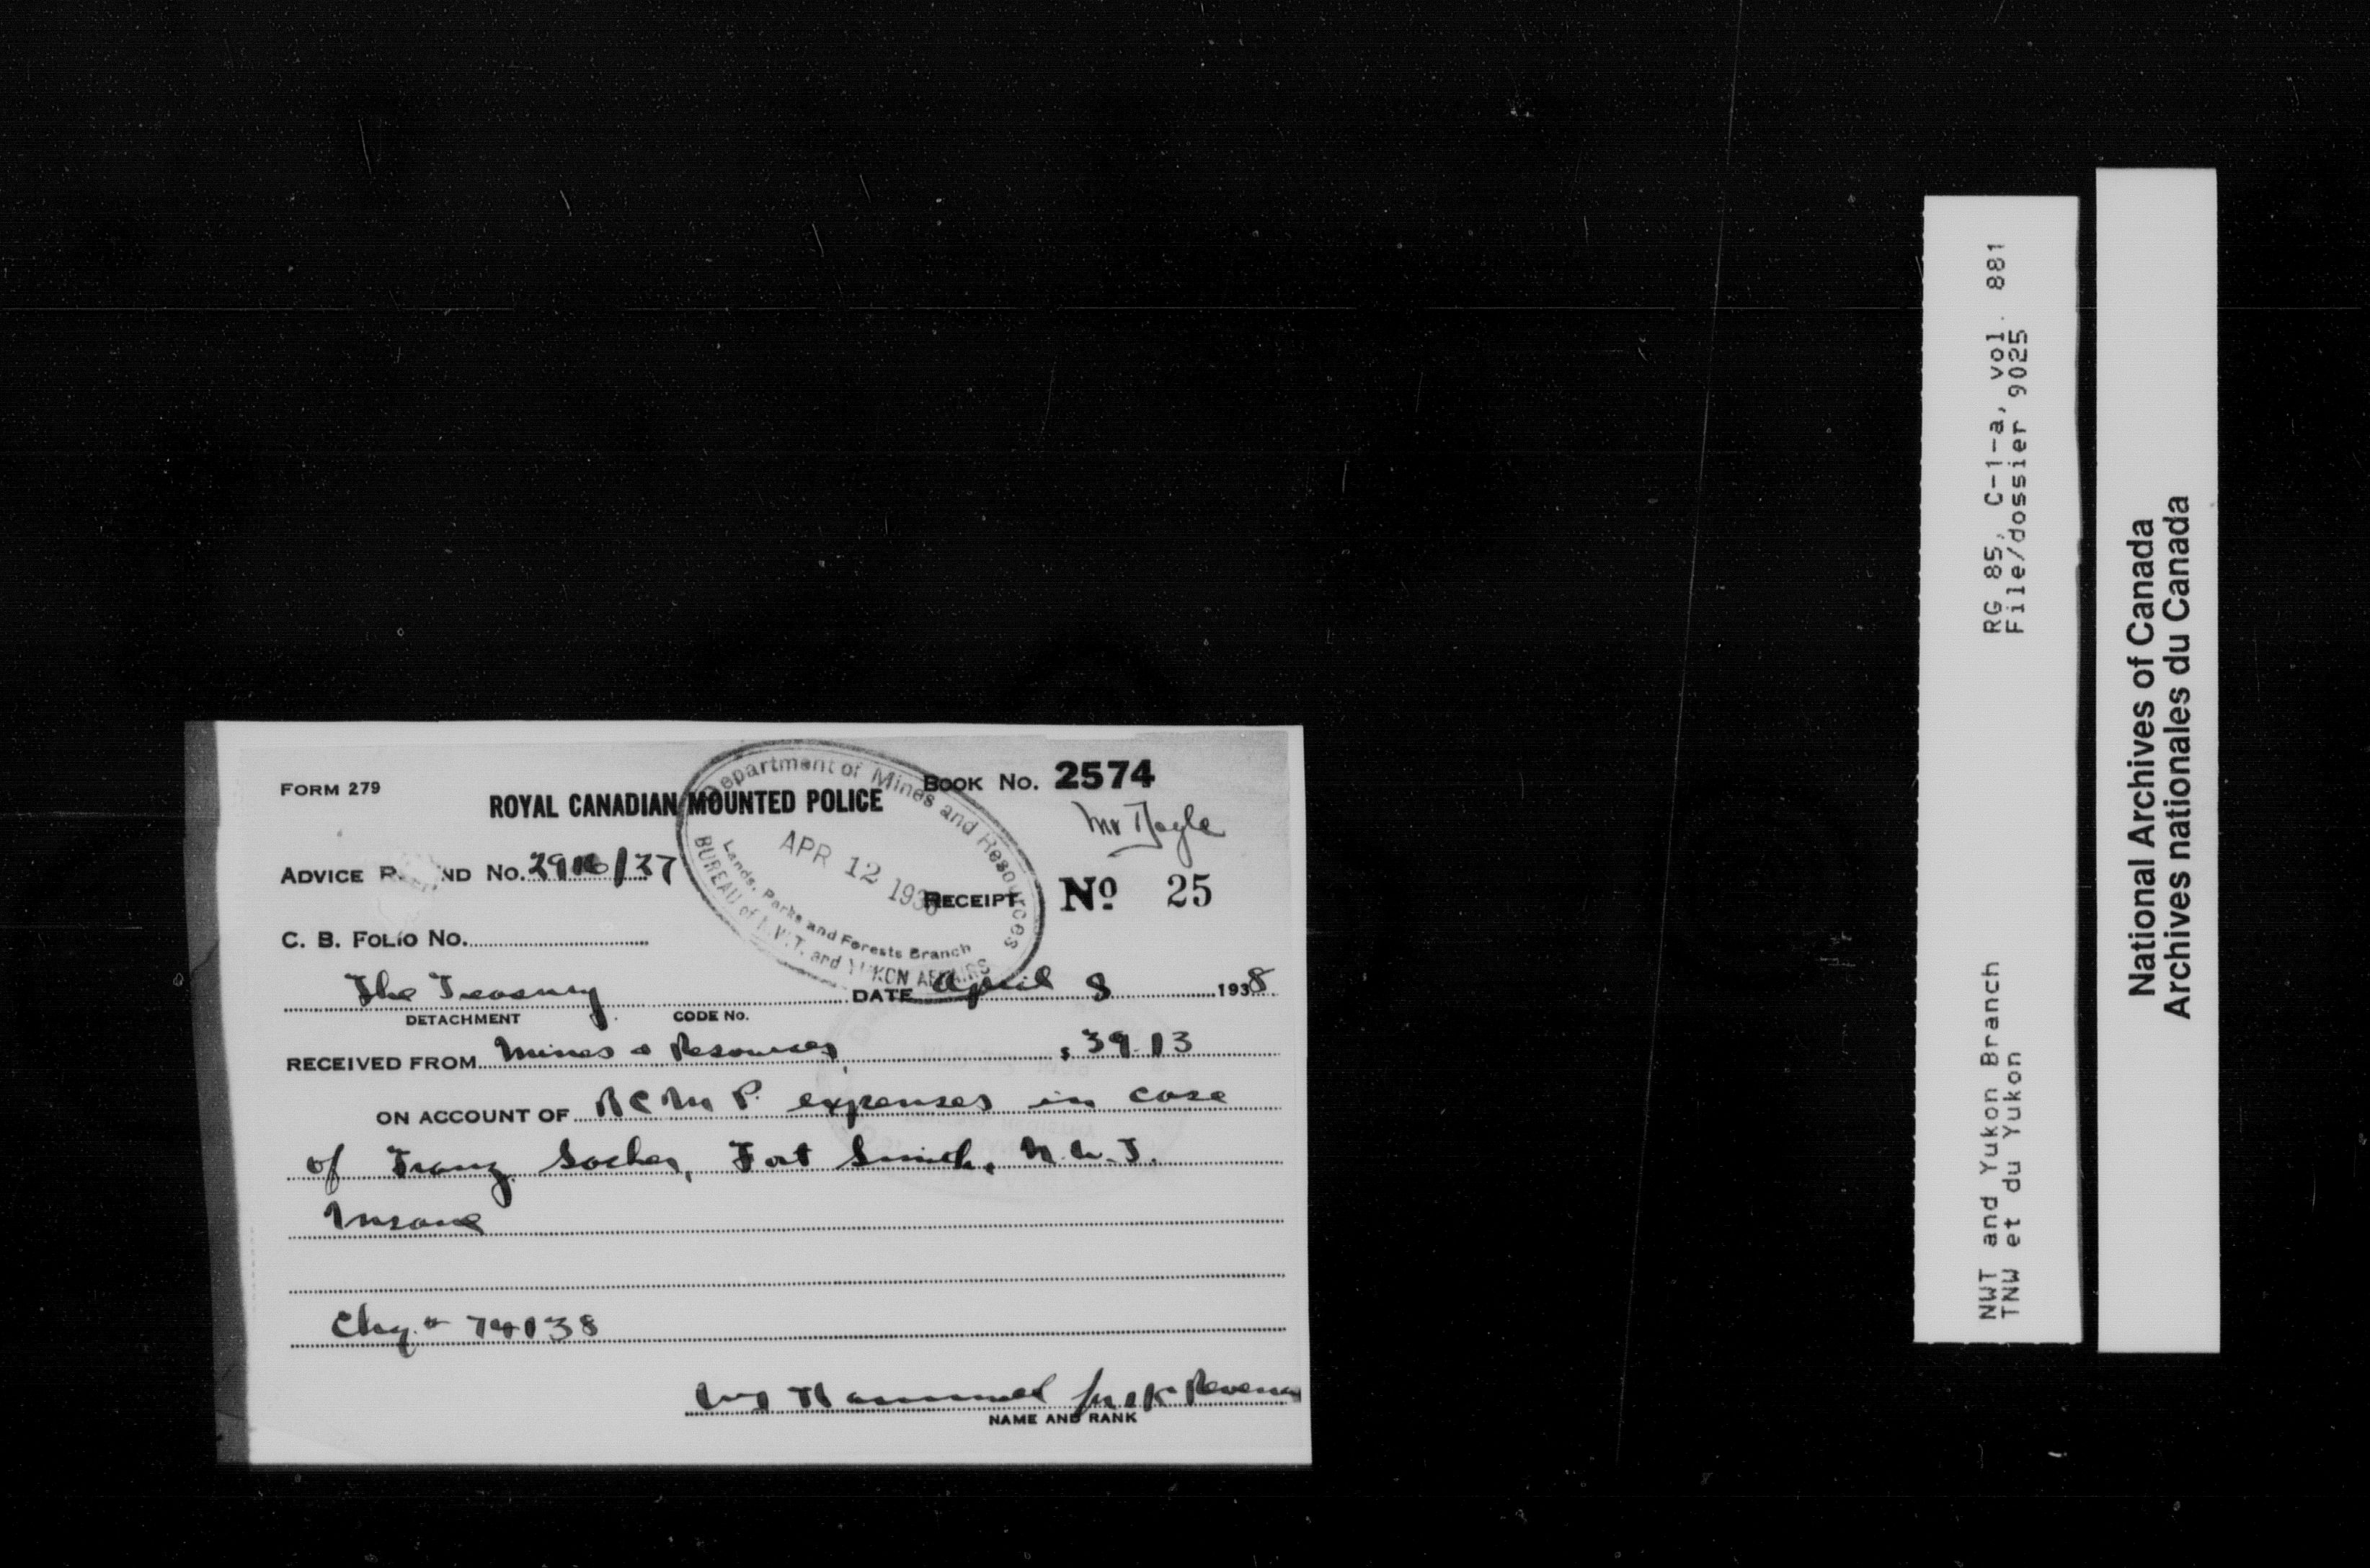 FORM 279
BOOK No. 2574
ROYAL CANADIAN MOUNTED POLICE
Department of Mines and Resources
APR 12 1938
Lands, Parks and Forests Branch
BUREAU of N.W.T. and YUKON AFFAIRS
Mr
ADVICE ND No. /37
RECEIPT No 25
C. B. FOLIO No.
The Treasury DATE April 8 1938
DETACHMENT CODE No.
RECEIVED FROM Mines & Resources, $ 39.13
ON ACCOUNT OF R C M P. expenses in case
of Franz Socher, Fort Smith, N.W.T.
Insane
Chq. # 74138
Revenue
NAME AND RANK
RG 85, C-1-a, vol. 881
File/dossier 9025
NWT and Yukon Branch
TNW et du Yukon
National Archives of Canada
Archives nationales du Canada